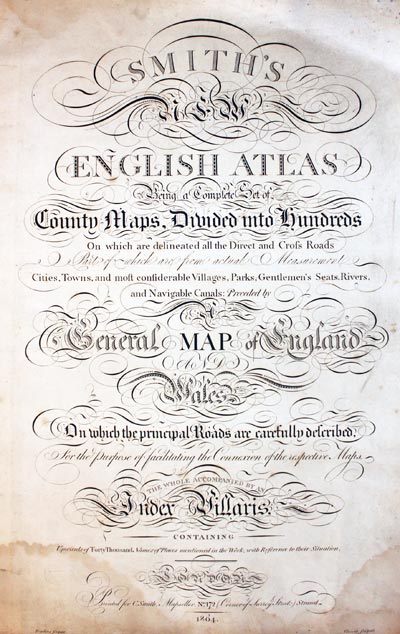 SMITH'S
NEW
ENGLISH ATLAS
Being a Complete Set of
County Maps, Divided into Hundreds
On which are delineated all the Direct and Croſs Roads
Part of which are from actual Measurement
Cities, Towns, and moſt conſiderable Villages, Parks, Gentlemen's Seats, Rivers,
and Navigable Canals: Preceded by
A
General MAP of England
AND
Wales
On which the principal Roads are carefully deſcribed,
For the Purpose of facilitating the Connexion of the respective Maps.
THE WHOLE ACCOMPANIED BY AN
Index Villaris,
CONTAINING
Upwards of Forty Thousand Names of Places mentioned in the Work, with Reference to their Situation.
LONDON
Printed for C. Smith Mapseller No. 172 (Corner of Surrey Street) Strand
1804.